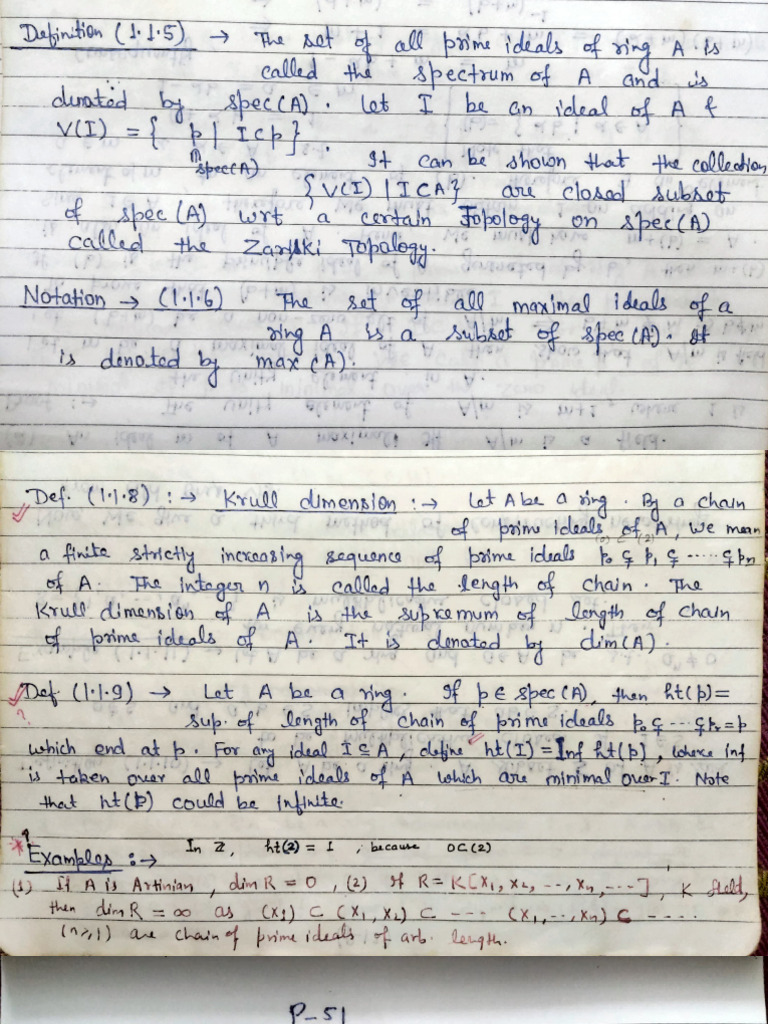 Definition (1.1.5) → The set of all prime ideals of ring A is
called the spectrum of A and is
denoted by spec(A). Let I be an ideal of A &
V(I) = { p | I ⊂ p }. It can be shown that the collection
∈ spec(A) { V(I) | I ⊂ A } are closed subset
of spec (A) wrt a certain Topology on spec(A)
called the Zariski Topology.
Notation → (1.1.6) The set of all maximal ideals of a
ring A is a subset of spec (A). It
is denoted by max (A).
Def. (1.1.8) :→ Krull dimension :→ Let A be a ring. By a chain
of prime ideals of A, we mean
a finite strictly increasing sequence of prime ideals p₀ ⊊ p₁ ⊊ ..... ⊊ pₙ
of A. The integer n is called the length of chain. The
Krull dimension of A is the supremum of length of chain
of prime ideals of A. It is denoted by dim(A).
Def (1.1.9) → Let A be a ring. If p ∈ spec(A), then ht(p) =
? sup. of length of chain of prime ideals p₀ ⊊ ---- ⊊ pᵣ = p
which end at p. For any ideal I ⊆ A, define ht(I) = Inf ht(p), where inf
is taken over all prime ideals of A which are minimal over I. Note
that ht(p) could be infinite.
* ? Examples :→ In ℤ, ht(2) = 1, because 0 ⊂ (2)
(1) If A is Artinian, dim R = 0, (2) If R = K[X₁, X₂, ---, Xₙ, ----], K field,
then dim R = ∞ as (X₁) ⊂ (X₁, X₂) ⊂ --- (X₁, --, Xₙ) ⊂ ----.
(n ≥ 1) are chain of prime ideals of arb. length.
P-51